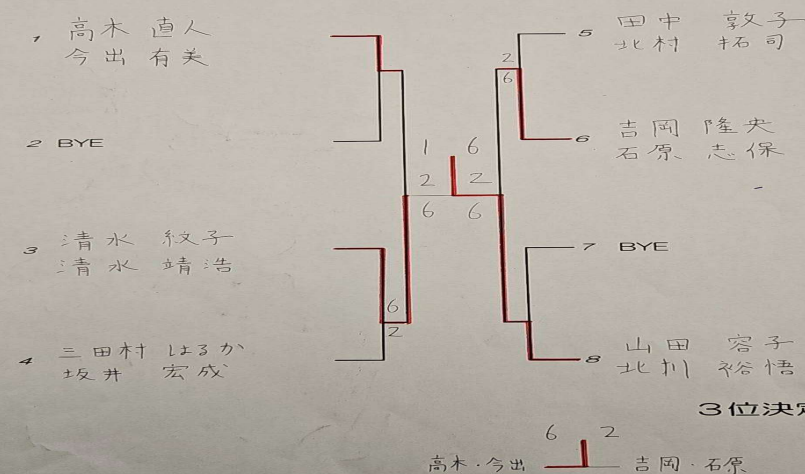 1 高木 直人
今出 有美
2 BYE
3 清水 紋子
清水 靖浩
4 三田村 はるか
坂井 宏成
6
2
1 6
2 2
6 6
2
6
5 田中 敦子
北村 拓司
6 吉岡 隆央
石原 志保
7 BYE
8 山田 容子
北川 裕悟
3位決定
6 2
高木・今出 吉岡・石原